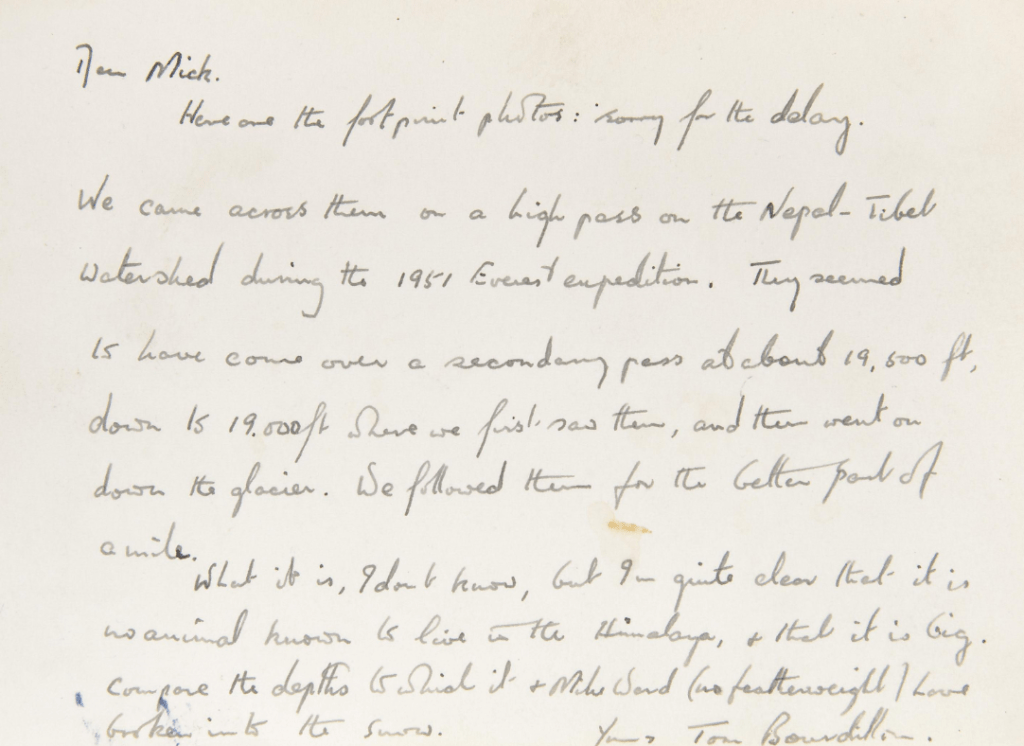 Dear Mick.
Here are the footprint photos: sorry for the delay.
We came across them on a high pass on the Nepal-Tibet
Watershed during the 1951 Everest expedition. They seemed
to have come over a secondary pass at about 19,500 ft,
down to 19.000ft where we first saw them, and then went on
down the glacier. We followed them for the better part of
a mile.
What it is, I don't know, but I'm quite clear that it is
no animal known to live in the Himalaya, & that it is big.
Compare the depths to which it & Mike Ward (no featherweight) have
broken into the snow. Yours Tom Bourdillon.